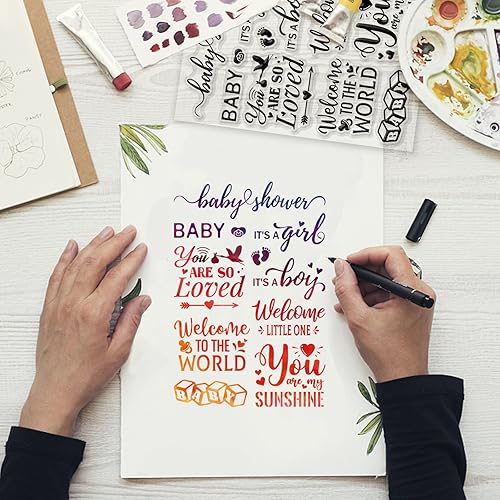 baby
BABY
IT'S A
You
ARE SO
Loved
Welcome
TO THE
WORLD
You
are my
BABY
baby shower
BABY
IT'S A girl
You
ARE SO
Loved
IT'S A boy
Welcome
TO THE
WORLD
Welcome
LITTLE ONE
You
are my
SUNSHINE
BABY